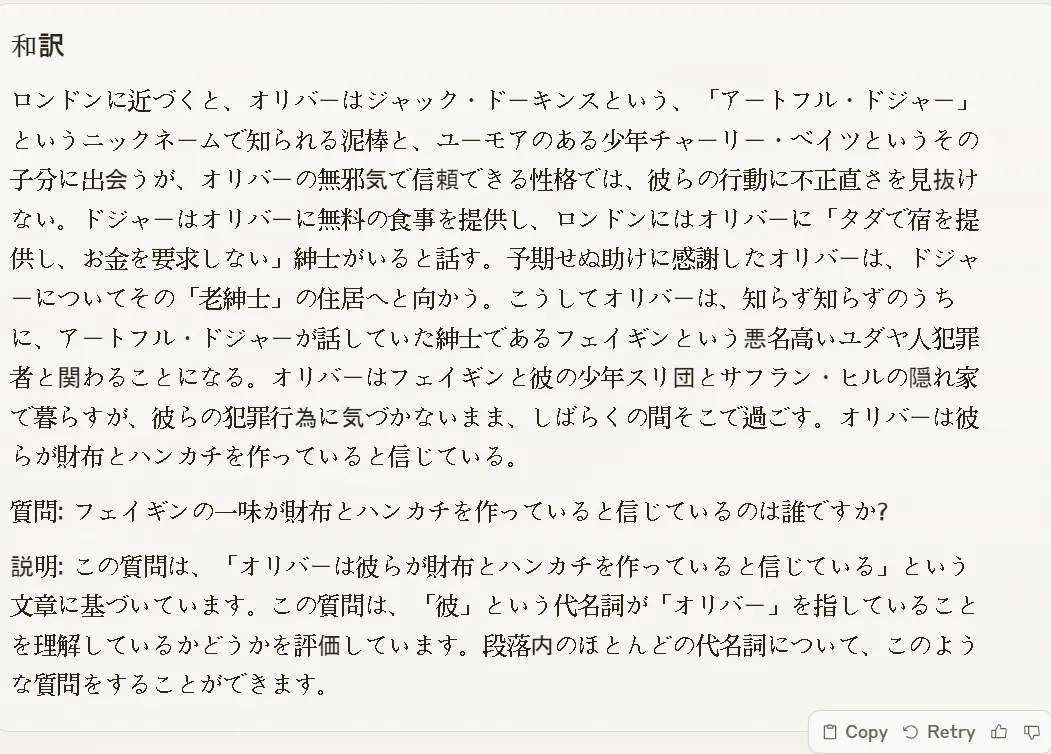 和訳
ロンドンに近づくと、オリバーはジャック・ドーキンスという、「アートフル・ドジャー」
というニックネームで知られる泥棒と、ユーモアのある少年チャーリー・ベイツというその
子分に出会うが、オリバーの無邪気で信頼できる性格では、彼らの行動に不正直さを見抜け
ない。ドジャーはオリバーに無料の食事を提供し、ロンドンにはオリバーに「タダで宿を提
供し、お金を要求しない」紳士がいると話す。予期せぬ助けに感謝したオリバーは、ドジャ
ーについてその「老紳士」の住居へと向かう。こうしてオリバーは、知らず知らずのうち
に、アートフル・ドジャーが話していた紳士であるフェイギンという悪名高いユダヤ人犯罪
者と関わることになる。オリバーはフェイギンと彼の少年スリ団とサフラン・ヒルの隠れ家
で暮らすが、彼らの犯罪行為に気づかないまま、しばらくの間そこで過ごす。オリバーは彼
らが財布とハンカチを作っていると信じている。
質問: フェイギンの一味が財布とハンカチを作っていると信じているのは誰ですか?
説明: この質問は、「オリバーは彼らが財布とハンカチを作っていると信じている」という
文章に基づいています。この質問は、「彼」という代名詞が「オリバー」を指していること
を理解しているかどうかを評価しています。段落内のほとんどの代名詞について、このよう
な質問をすることができます。
Copy Retry